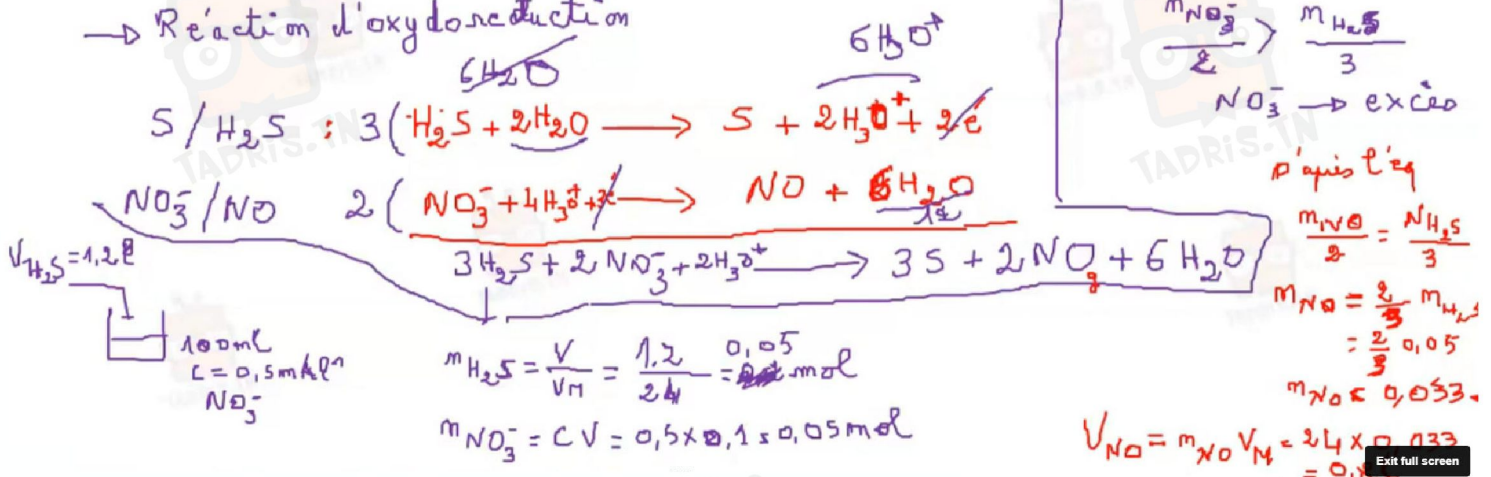 → Réaction d'oxydoreduction
6H₂O
6H₃O⁺
S/H₂S : 3(H₂S + 2H₂O → S + 2H₃O⁺ + 2é
NO₃⁻/NO 2( NO₃⁻ + 4H₃O⁺ + 3é → NO + 6H₂O
12
3H₂S + 2NO₃⁻ + 2H₃O⁺ → 3S + 2NOg + 6H₂O
V_H₂S = 1,2l
100mL
C = 0,5mol.l⁻¹
NO₃⁻
n_H₂S = V/VM = 1,2/24 = 0,05 mol
n_NO₃⁻ = CV = 0,5 x 0,1 = 0,05 mol
n_NO₃⁻/2 > n_H₂S/3
NO₃⁻ → excès
D'après l'eq
n_NO/2 = n_H₂S/3
n_NO = 2/3 n_H₂S
= 2/3 0,05
n_NO = 0,033
V_NO = n_NO V_M = 24 x 0,033
= 0,
TADRIS.TN
TADRIS.TN
Exit full screen